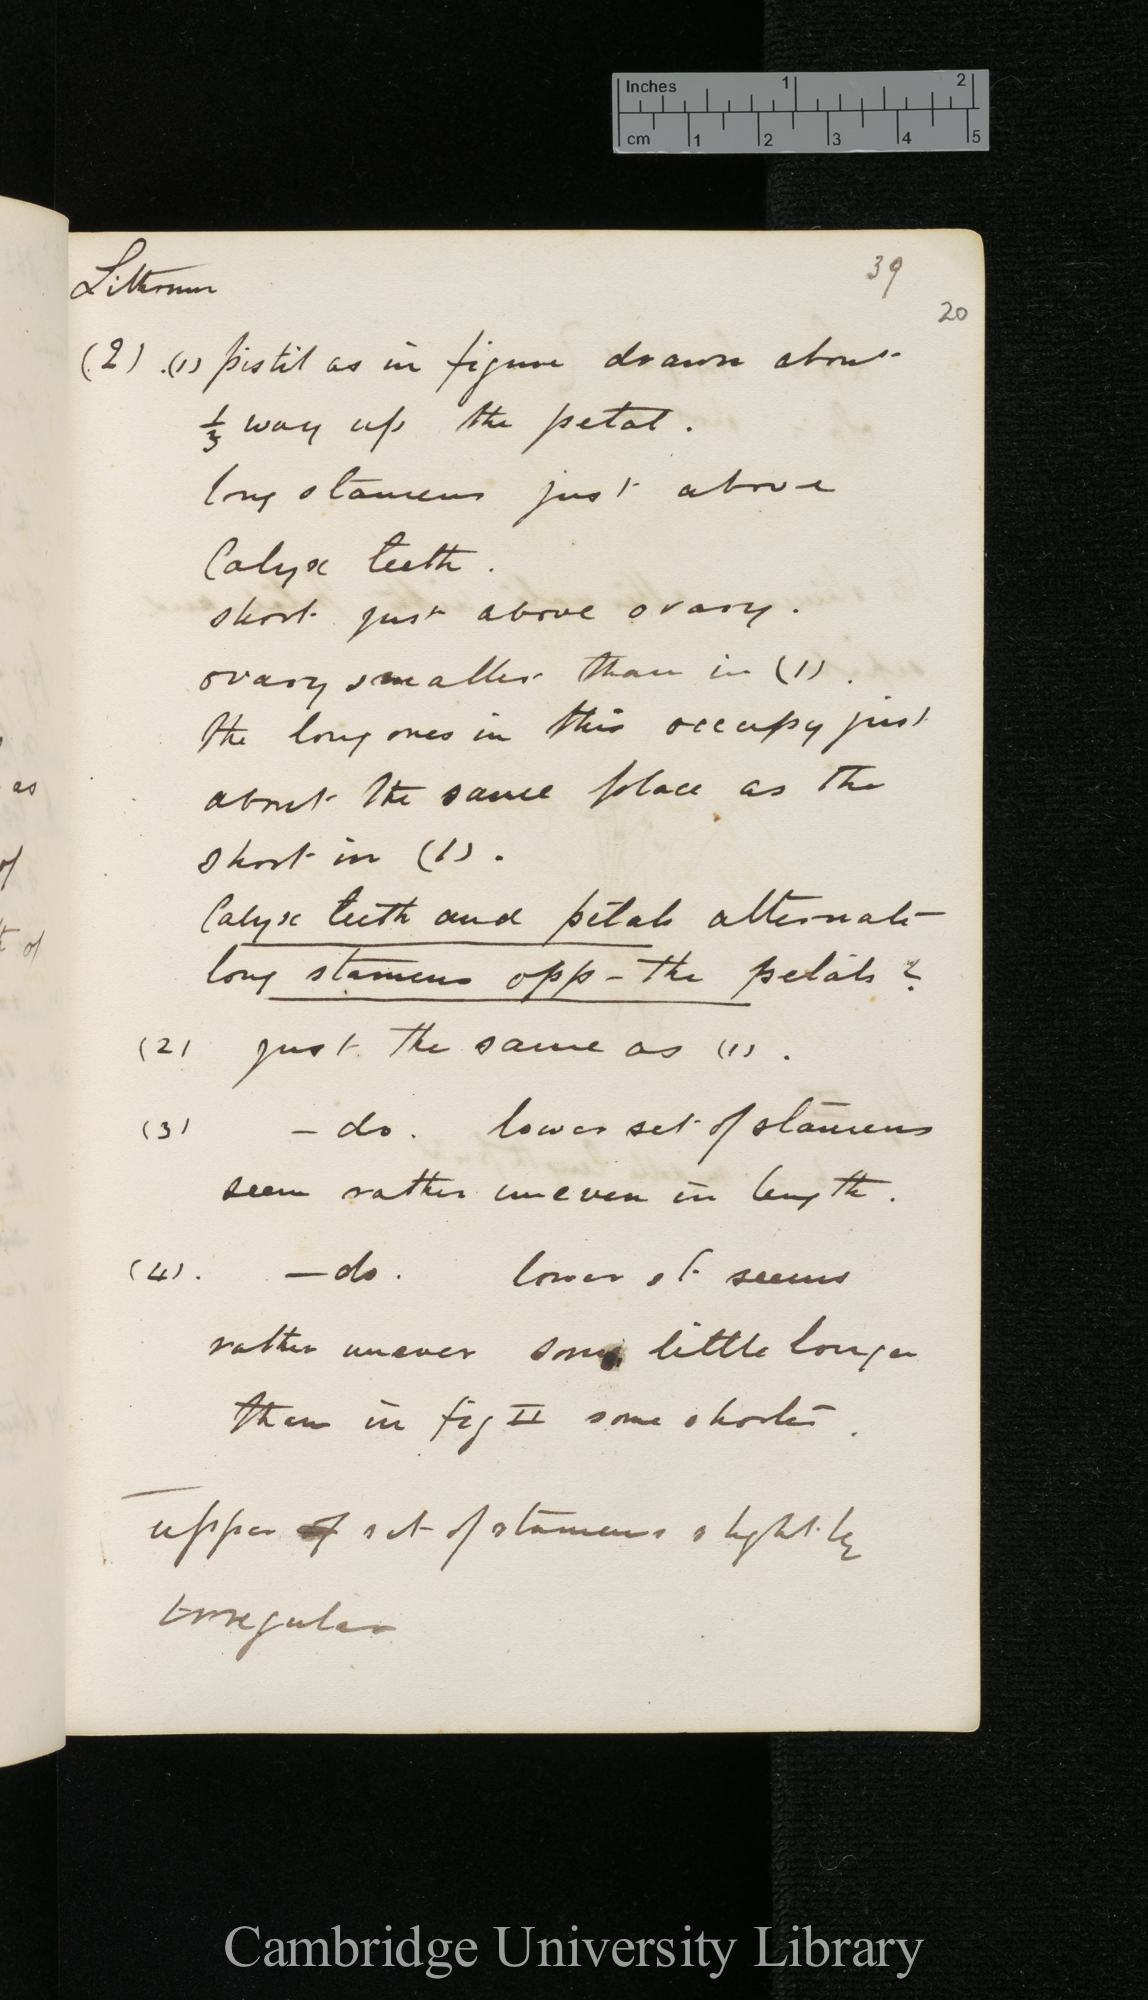 Inches 1 2
cm 1 2 3 4 5
39
Lithrum
20
(2) (1) pistil as in figure drawn about
1/3 way up the petal.
long stamens just above
Calyx teeth.
short just above ovary.
ovary smaller than in (1).
the long ones in this occupy just
about the same place as the
short in (1).
Calyx teeth and petals alternate
long stamens opp - the petals?
(2) just the same as (1).
(3) – do. lower set of stamens
seem rather uneven in length.
(4). – do. lower st seems
rather uneven some little longer
than in fig II some shorter.
upper of set of stamens slightly
irregular
as
of
of
Cambridge University Library